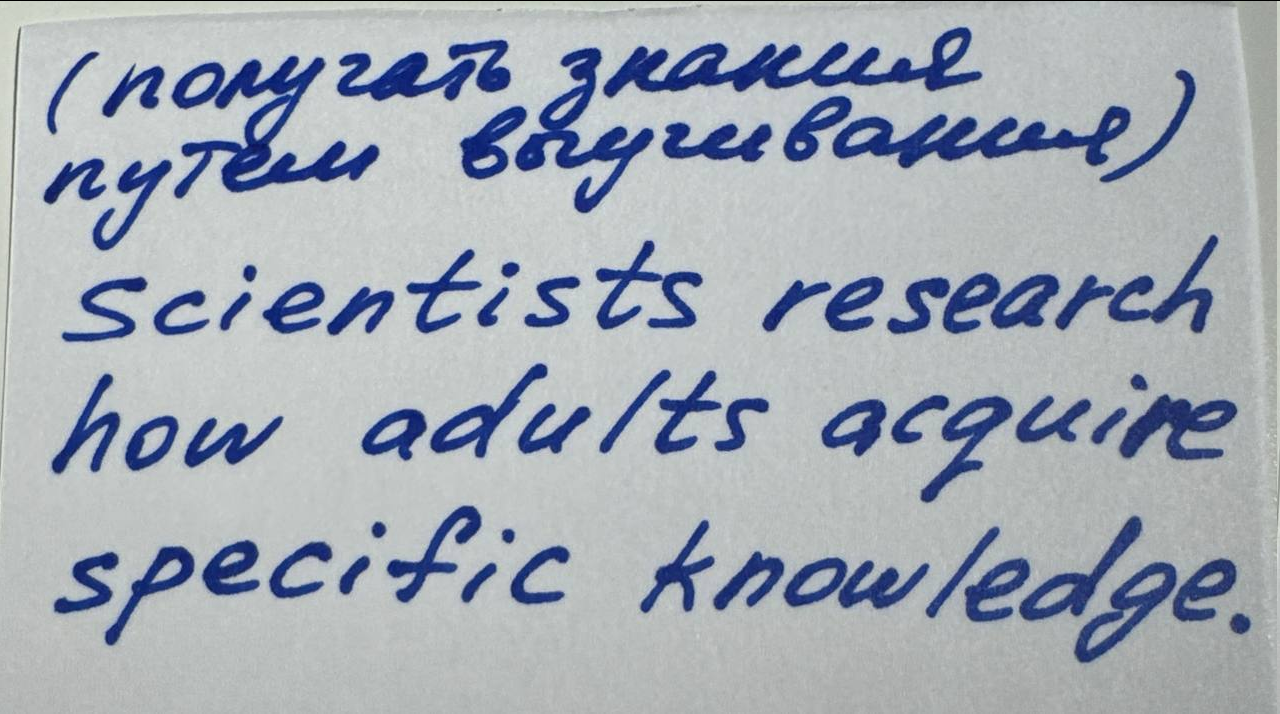 (получать знания
путем выучивания)
scientists research
how adults acquire
specific knowledge.